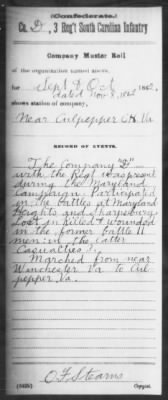 (Confederate.)
Co. D, 3 Reg't South Carolina Infantry
Company Muster Roll
of the organization named above,
for Sept & Oct, 1862,
dated Nov 8, 1862
shows station of company,
Near Culpepper C.H. Va
RECORD OF EVENTS.
The Company "D"
with the Regt was present
during the Maryland
Campaign. Participated
in the battles at Maryland
Heights and Sharpsburg
Lost in Killed & Wounded
in the former battle 11
men in the latter
Casualties
Marched from near
Winchester Va to Cul-
pepper Va.
O F Stearns
Copyist.